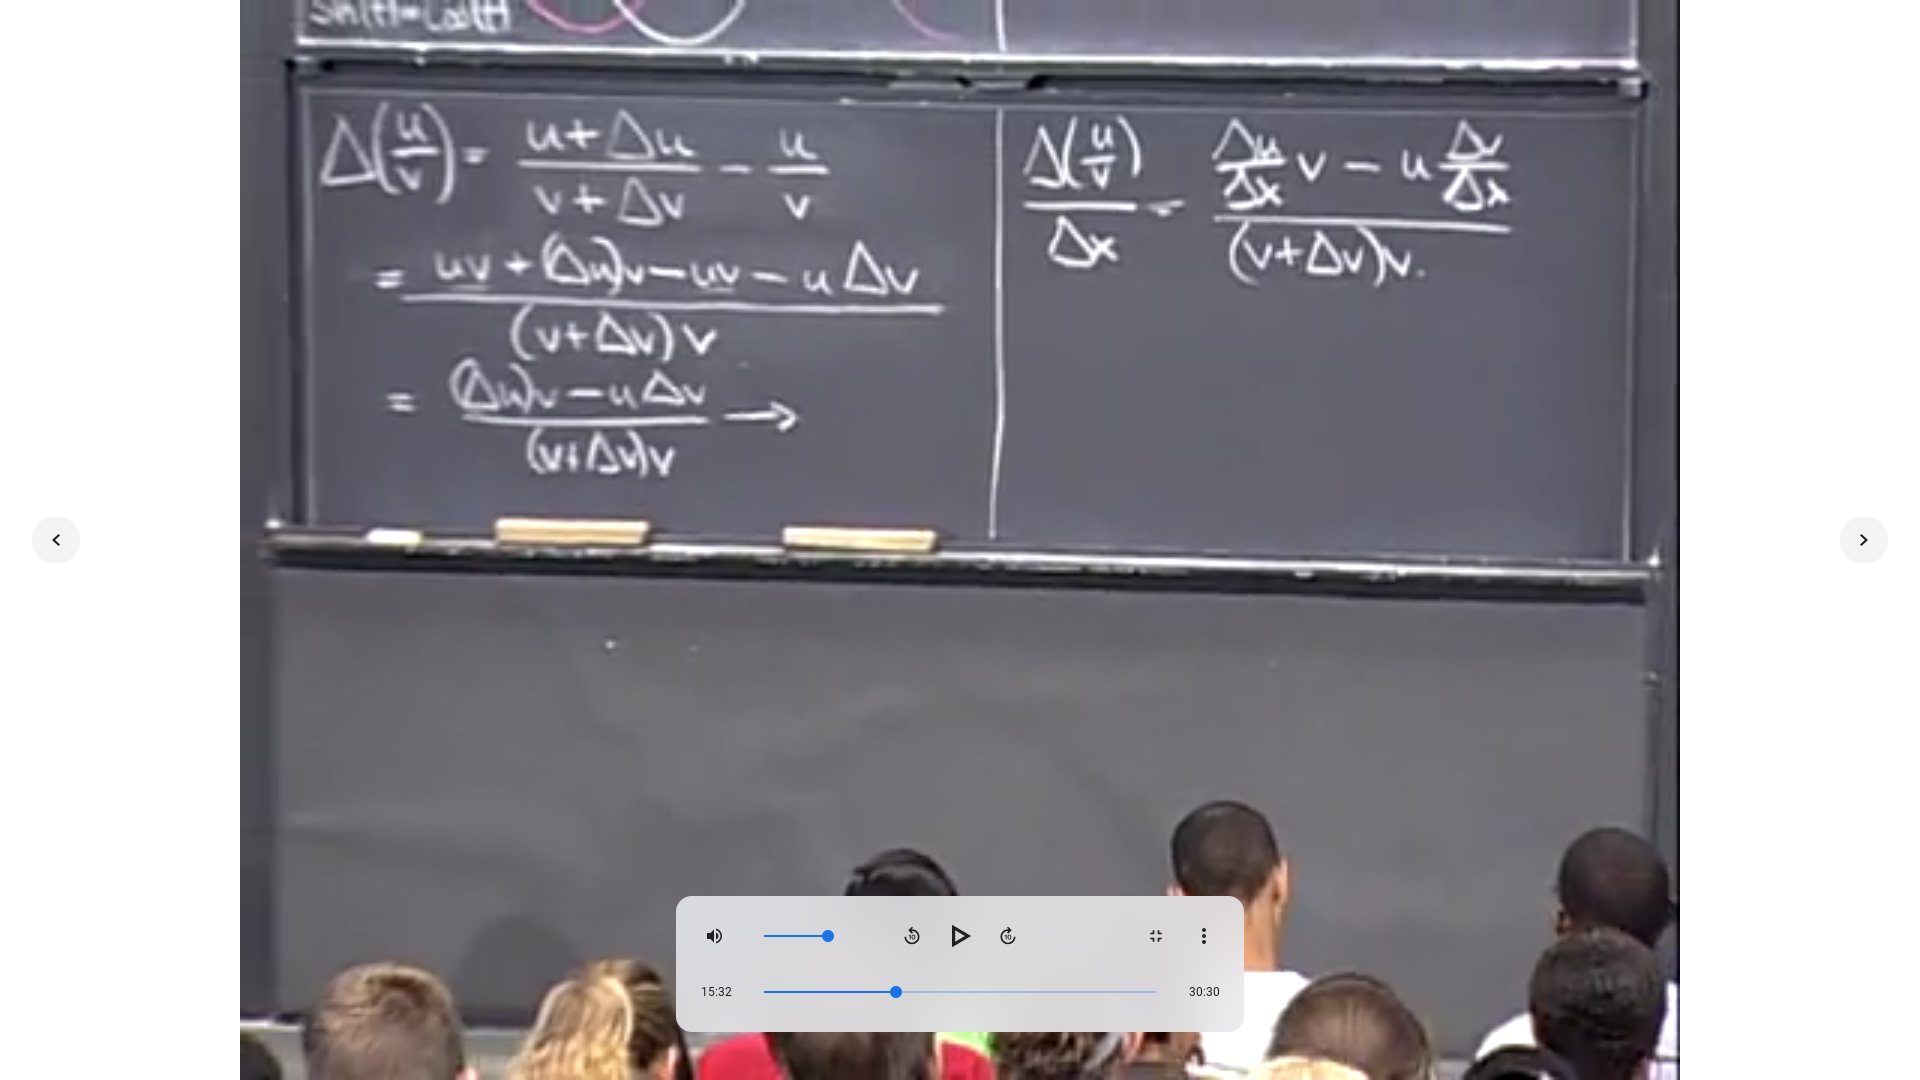 Sin'(t)=Cos(t)
Δ(u/v) = (u+Δu)/(v+Δv) - u/v
= (uv + (Δu)v - uv - uΔv)/((v+Δv)v)
= ((Δu)v - uΔv)/((v+Δv)v) →
Δ(u/v)/Δx = ((Δu/Δx)v - u(Δv/Δx))/((v+Δv)v).
10
10
15:32
30:30